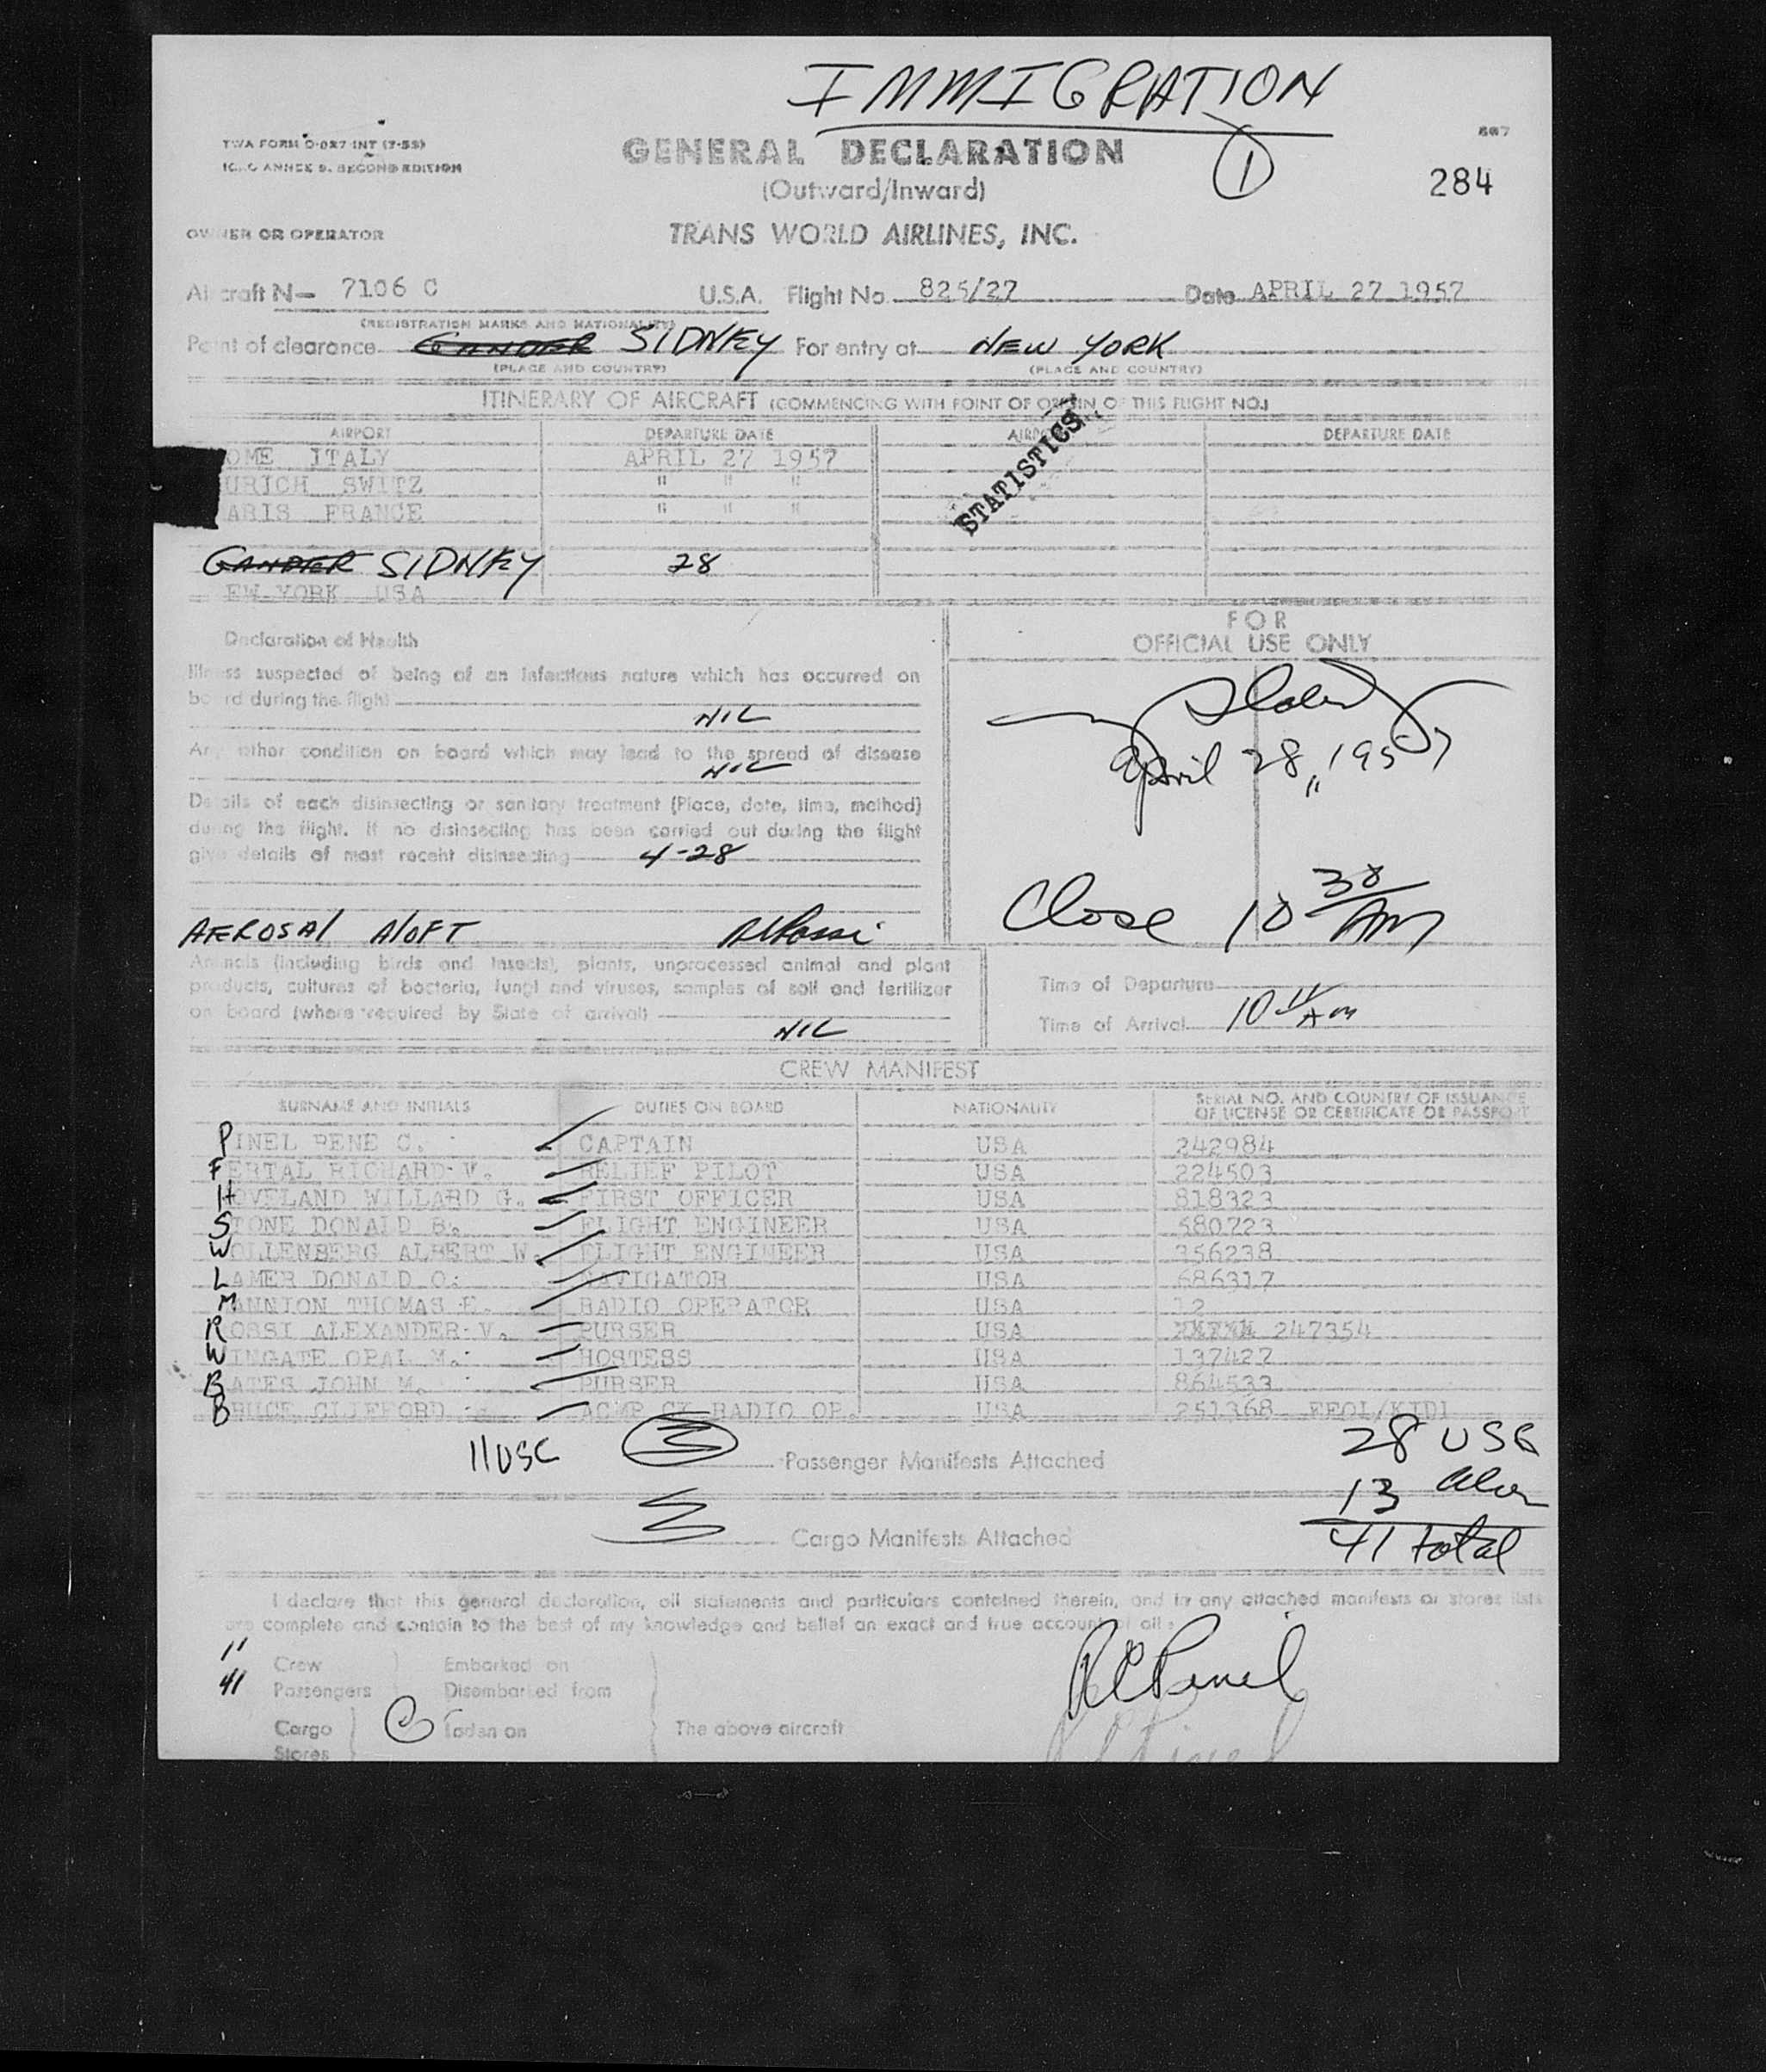 IMMIGRATION
1
TWA FORM O-027 INT (7-55)
GENERAL DECLARATION
807
ICAO ANNEX 9, SECOND EDITION
(Outward/Inward)
284
OWNER OR OPERATOR
TRANS WORLD AIRLINES, INC.
Aircraft N— 7106 C U.S.A. Flight No. 825/27 Date APRIL 27 1957
(REGISTRATION MARKS AND NATIONALITY)
Point of clearance GANDER SIDNEY For entry at NEW YORK
(PLACE AND COUNTRY) (PLACE AND COUNTRY)
ITINERARY OF AIRCRAFT (COMMENCING WITH POINT OF ORIGIN OF THIS FLIGHT NO.)
AIRPORT DEPARTURE DATE AIRPORT DEPARTURE DATE
OME ITALY APRIL 27 1957
URICH SWITZ " " "
ARIS FRANCE " " "
STATISTICS
GANDER SIDNEY 28
EW YORK USA
FOR
OFFICIAL USE ONLY
Declaration of Health
Illness suspected of being of an infectious nature which has occurred on
board during the flight
NIL
Any other condition on board which may lead to the spread of disease
NIL
April 28, 1957
Details of each disinsecting or sanitary treatment (Place, date, time, method)
during the flight. If no disinsecting has been carried out during the flight
give details of most recent disinsecting 4-28
Close 10 30 AM
AEROSAL ALOFT AVRossi
Animals (including birds and insects), plants, unprocessed animal and plant
products, cultures of bacteria, fungi and viruses, samples of soil and fertilizer
on board (where required by State of arrival)
NIL
Time of Departure
Time of Arrival 10 11 AM
CREW MANIFEST
SURNAME AND INITIALS DUTIES ON BOARD NATIONALITY SERIAL NO. AND COUNTRY OF ISSUANCE
OF LICENSE OR CERTIFICATE OR PASSPORT
PINEL RENE C. CAPTAIN USA 242984
FERTAL RICHARD V. RELIEF PILOT USA 224503
HOVELAND WILLARD G. FIRST OFFICER USA 818323
STONE DONALD B. FLIGHT ENGINEER USA 480723
WOLLENBERG ALBERT W. FLIGHT ENGINEER USA 356238
LAMER DONALD O. NAVIGATOR USA 686317
MANNION THOMAS E. RADIO OPERATOR USA 12
ROSSI ALEXANDER V. PURSER USA 247354
WINGATE OPAL M. HOSTESS USA 137427
BATES JOHN M. PURSER USA 864533
BRUCE CLIFFORD ACMR CK RADIO OP. USA 251368
11 USC 3 Passenger Manifests Attached 28 USC
13 alien
3 Cargo Manifests Attached 41 total
I declare that this general declaration, all statements and particulars contained therein, and in any attached manifests or stores lists
are complete and contain to the best of my knowledge and belief an exact and true account of all:
11 Crew Embarked on
41 Passengers Disembarked from
RCPinel
Cargo Laden on The above aircraft
Stores
RCPinel